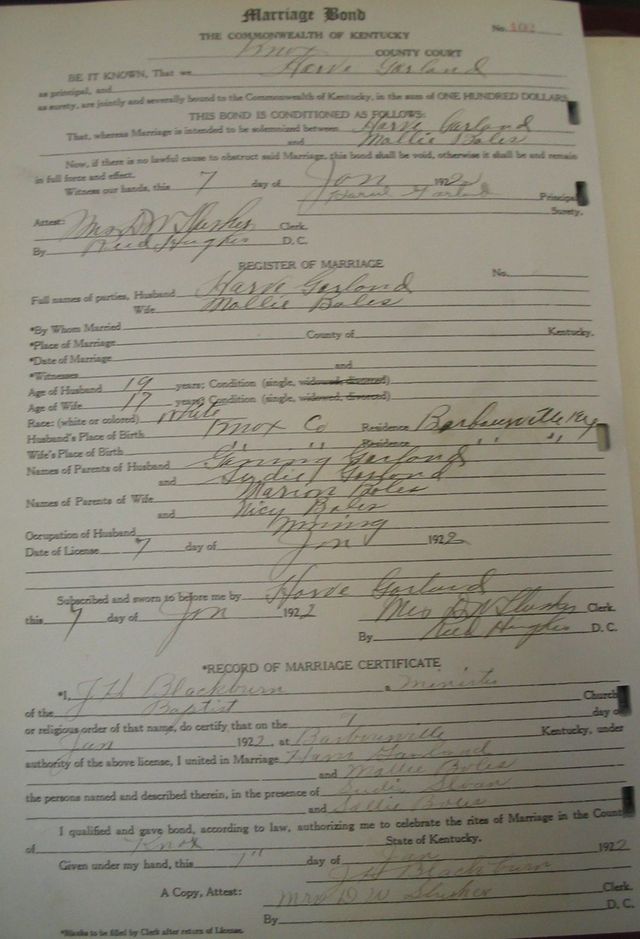 Marriage Bond
No. 102
THE COMMONWEALTH OF KENTUCKY
Knox COUNTY COURT
BE IT KNOWN, That we Harve Garland
as principal, and
as surety, are jointly and severally bound to the Commonwealth of Kentucky, in the sum of ONE HUNDRED DOLLARS
THIS BOND IS CONDITIONED AS FOLLOWS:
That, whereas Marriage is intended to be solemnized between Harve Garland
and Mollie Boles
Now, if there is no lawful cause to obstruct said Marriage, this bond shall be void, otherwise it shall be and remain
in full force and effect.
Witness our hands, this 7 day of Jan 1922
Harve Garland Principal
Surety.
Attest: Mrs D W Slusher Clerk.
By Reed Hughes D. C.
REGISTER OF MARRIAGE
No.
Full names of parties, Husband Harve Garland
Wife Mollie Boles
*By Whom Married
*Place of Marriage County of Kentucky.
*Date of Marriage
*Witnesses and
Age of Husband 19 years; Condition (single, widowed, divorced)
Age of Wife 17 years; Condition (single, widowed, divorced)
Race: (white or colored) White
Husband's Place of Birth Knox Co Residence Barbourville Ky
Wife's Place of Birth " " Residence " "
Names of Parents of Husband Garland
and Garland
Names of Parents of Wife Marion Boles
and Nicy Boles
Occupation of Husband Mining
Date of License 7 day of Jan 1922
Subscribed and sworn to before me by Harve Garland
this 7 day of Jan 1922 Mrs D W Slusher Clerk.
By Reed Hughes D. C.
*RECORD OF MARRIAGE CERTIFICATE
*I, J H Blackburn a Minister Church
of the Baptist day of
or religious order of that name, do certify that on the 7
Jan 1922, at Barbourville Kentucky, under
authority of the above license, I united in Marriage Garland
and Mollie Boles
the persons named and described therein, in the presence of Sloan
and Sallie Boles
I qualified and gave bond, according to law, authorizing me to celebrate the rites of Marriage in the County
of Knox State of Kentucky.
Given under my hand, this 7" day of Jan 1922
J H Blackburn
A Copy, Attest: Mrs D W Slusher Clerk.
By D. C.
*Blanks to be filled by Clerk after return of License.